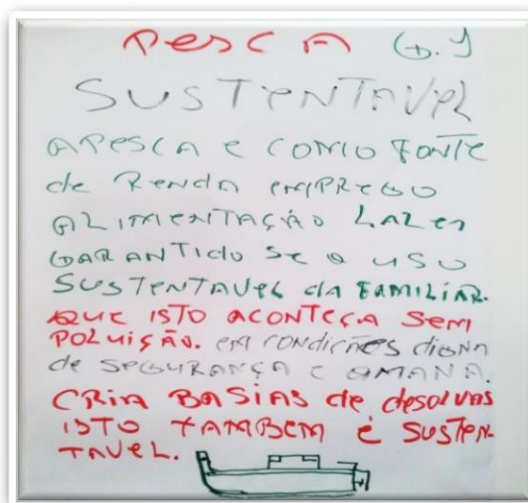 Pesca G.1
SUSTENTAVEL
A PESCA e COMO FONTE
de Renda emPREGO
ALIMENTAÇÃO LAZER
GARANTIDO Se o uso
SUSTENTAVEL da FAMILIAR.
QUE ISTO ACONTEÇA Sem
POLUIÇÃO. em CONDIÇÕES digna
de SEGURANÇA e OMANA.
CRIA BASIAS de desovas
ISTO TAMBEM é SUSTEN-
TAVEL.